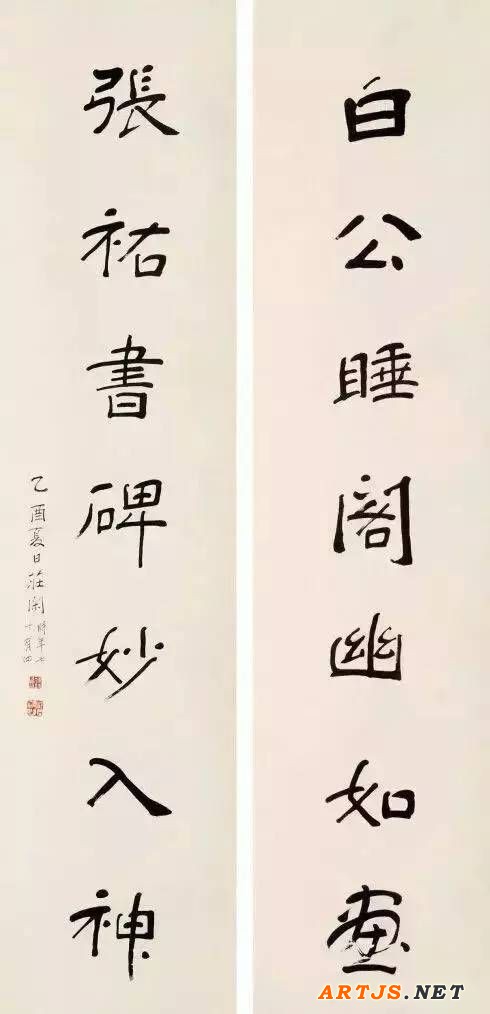 白公睡阁幽如画
張祜書碑妙入神
乙酉夏日莊閑時年七
十有四
ARTJS.NET